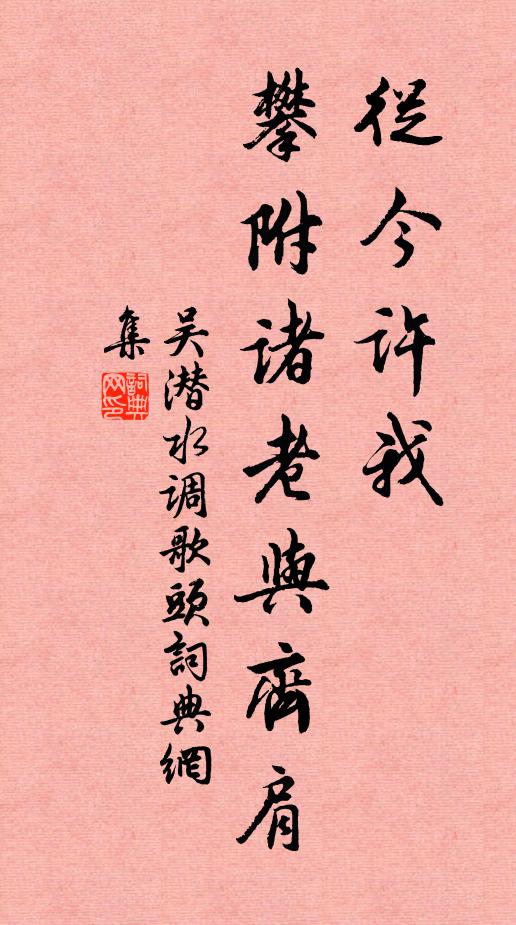 從今許我
攀附諸老與齊肩
吴潜水调歌頭詞典網
集
詞典网印